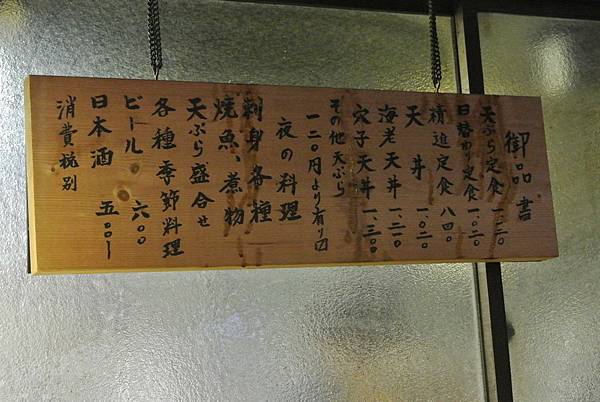 御品書
天ぷら定食 一、一二〇
日替わり定食 一、〇二〇
精進定食 八四〇
天丼 一、〇二〇
海老天丼 一、二二〇
穴子天丼 一、三〇〇
その他天ぷら
一二〇円より有り〼
夜の料理
刺身各種
焼魚、煮物
天ぷら盛合せ
各種季節料理
ビール 六〇〇
日本酒 五〇〇ー
消費税別